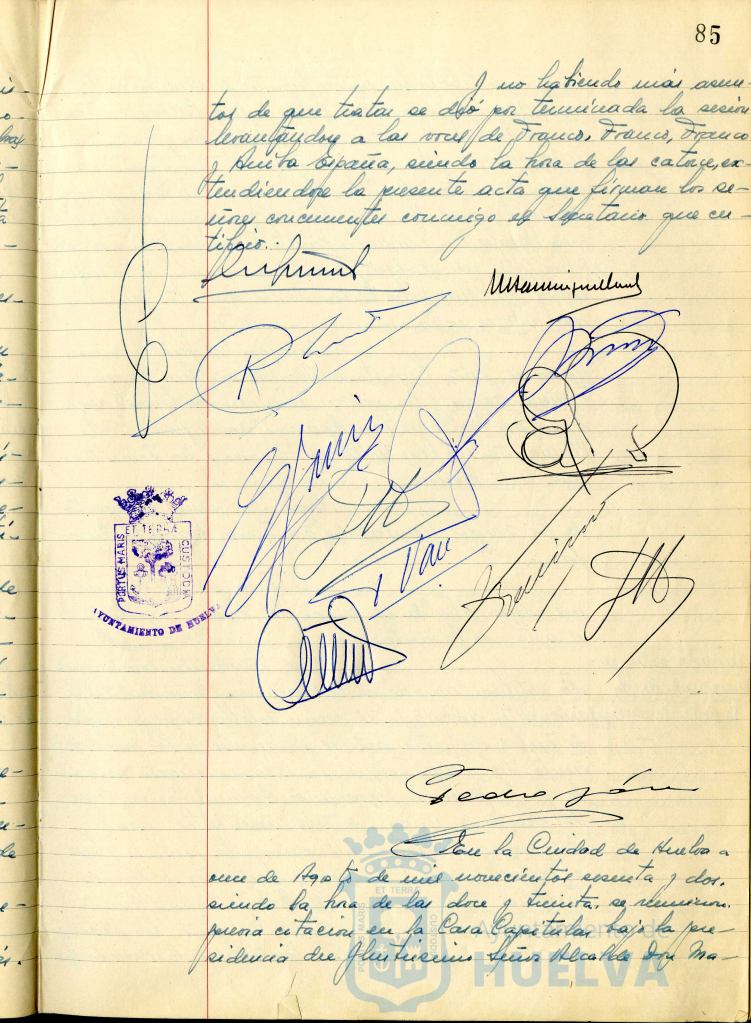 85
Y no habiendo más asun-
tos de que tratar se dejó por terminada la sesión
levantándose a las voces de Franco, Franco, Franco
y Arriba España, siendo la hora de las catorce, ex-
tendiendose la presente acta que firman los se-
ñores concurrentes conmigo el Secretario que cer-
tifico.
ET TERRA
PORTUS MARIS
CUSTODIA
AYUNTAMIENTO DE HUELVA
En la Ciudad de Huelva a
once de Agosto de mil novecientos sesenta y dos,
siendo la hora de las doce y treinta, se reunieron,
previa citación en la Casa Capitular bajo la pre-
sidencia del Ilustrisimo Señor Alcalde Don Ma-
ET TERRA
PORTUS MARIS
CUSTODIA
Ayuntamiento de
HUELVA